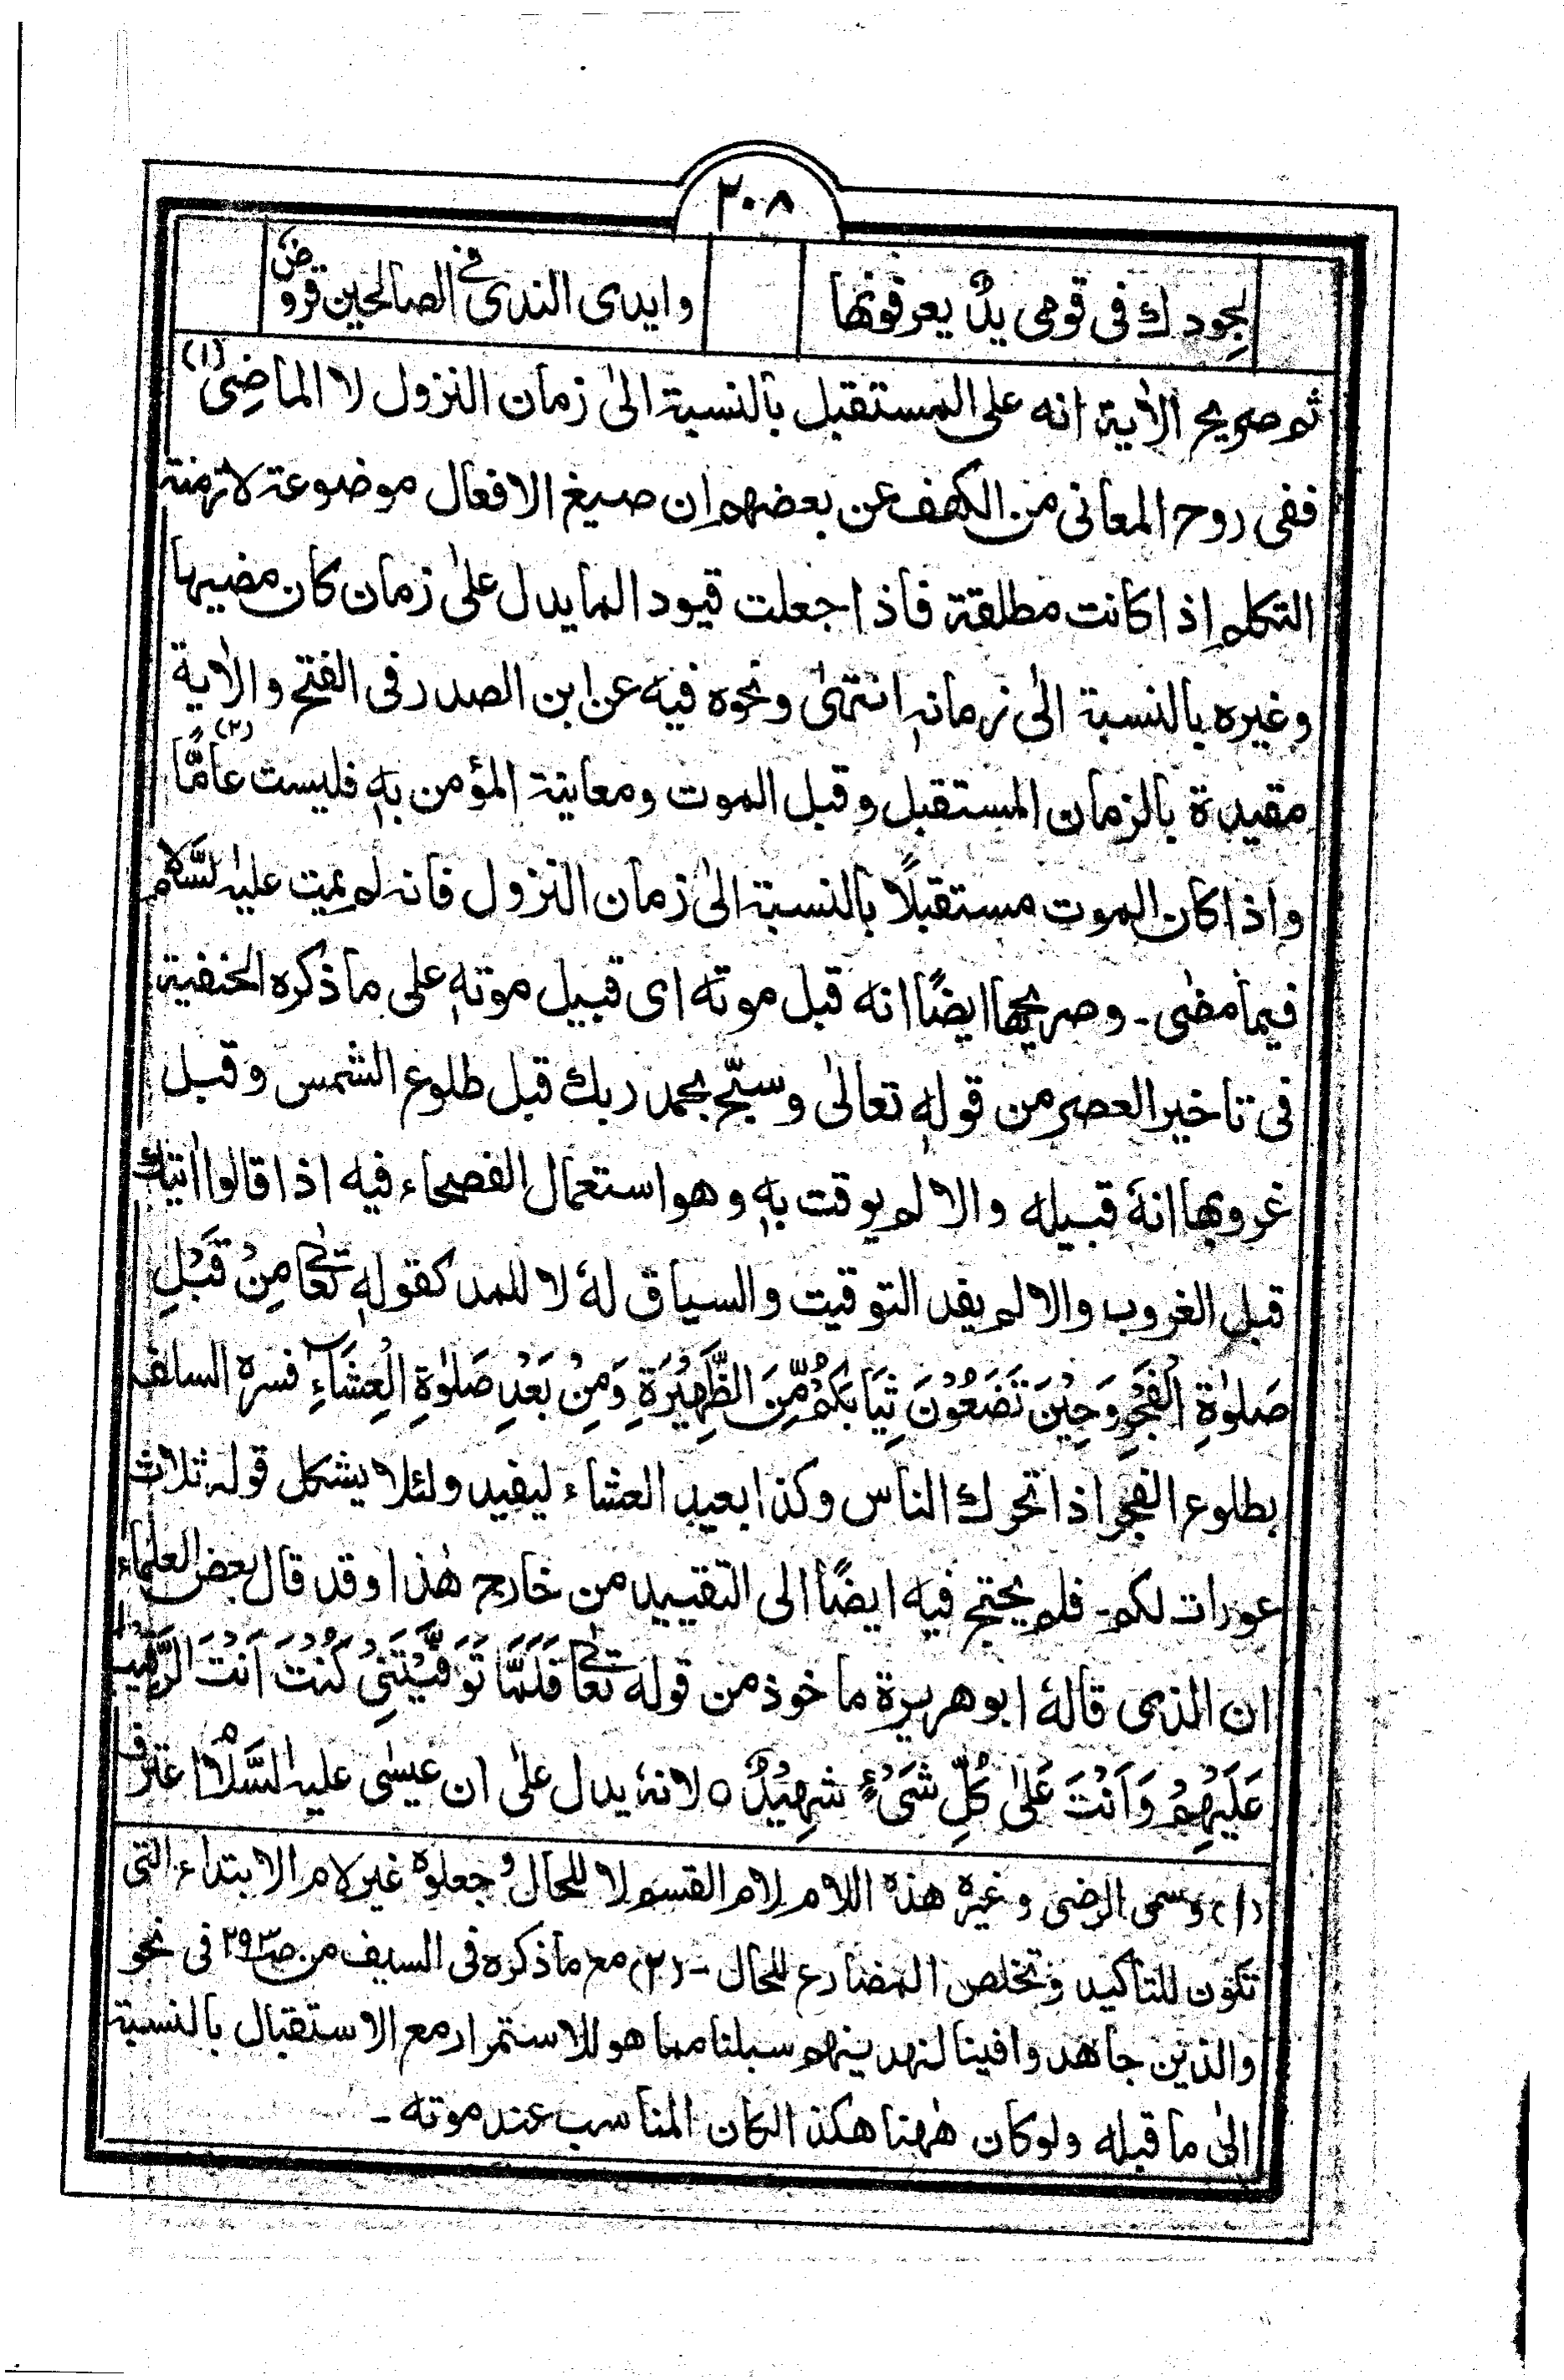 ٣٠٨
لجودك فى قومى يدٌ يعرفونها وايدى الندى فى الصالحين قروض
ثم صريح الاٰية انه على المستقبل بالنسبة الىٰ زمان النزول لا الماضِى (١)
ففى روح المعانى من الكهف عن بعضهم ان صيغ الافعال موضوعة لازمنة
التكلم اذا كانت مطلقة فاذا جعلت قيود الما يدل علىٰ زمان كان مضيها
وغيره بالنسبة الىٰ زمانهٖ انتهىٰ ونحوه فيه عن ابن الصدر فى الفتح والاٰية
مقيدة بالزمان المستقبل وقبل الموت ومعاينة المؤمن بهٖ فليست عامًّا (٢)
واذا كان الموت مستقبلًا بالنسبة الىٰ زمان النزول فانه لم يمت عليه السَّلام
فيما مضٰى ـ وصريحها ايضًا انه قبل موته اى قبيل موتهٖ على ما ذكره الحنفية
فى تاخير العصر من قولهٖ تعالىٰ وسبّح بحمد ربك قبل طلوع الشمس وقبل
غروبها انهٗ قبيله والا لم يوقت بهٖ وهو استعمال الفصحاء فيه اذا قالوا اٰتيك
قبل الغروب والا لم يفد التوقيت والسياق لهٗ لا للمد كقولهٖ تعالٰى مِنْ قَبْلِ
صَلوٰةِ الْفَجْرِ وَحِيْنَ تَضَعُوْنَ ثِيَابَكُمْ مِّنَ الظَّهِيْرَةِ وَمِنْ بَعْدِ صَلوٰةِ الْعِشَآءِ فسره السلف
بطلوع الفجر اذا تحرك الناس وكذا بعيد العشاء ليفيد ولئلا يشمل قوله ثلاث
عورات لكم ـ فلم يحتج فيه ايضًا الى التقييد من خارج هٰذا وقد قال بعض العلماء
ان الذى قالهٗ ابو هريرة ما خوذ من قوله تعالٰى فَلَمَّا تَوَفَّيْتَنِىْ كُنْتَ اَنْتَ الرَّقِيْبَ
عَلَيْهِمْ وَاَنْتَ عَلىٰ كُلِّ شَىْءٍ شَهِيْدٌ ○ لانهٗ يدل علىٰ ان عيسٰى عليه السَّلَامُ اعترف
(١) وسمى الرضى وغيره هذه اللام لام القسم لا للحال وجعلوه غير لام الابتداء التى
تكون للتاكيد وتخلص المضارع للحال ـ (٢) مع ما ذكره فى السيف من صـ٢٩٣ فى نحو
والذين جاهدوا فينا لنهدينهم سبلنا مما هو للاستمرار مع الاستقبال بالنسبة
الىٰ ما قبله ولو كان هٰهنا هكذا لكان المناسب عند موته ـ